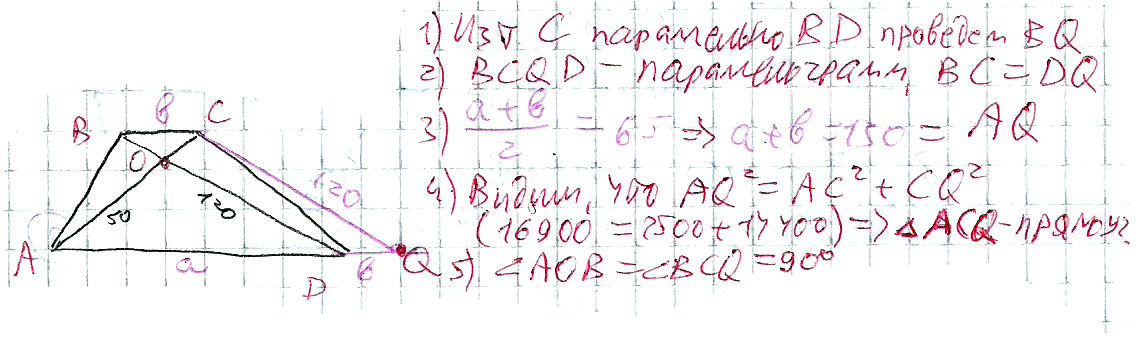 1) Из т C паралельно BD проведем BQ
2) BCQD – паралелограмм, BC = DQ
3) (a+b)/2 = 65 => a+b = 130 = AQ
4) Видим, что AQ² = AC² + CQ²
(16900 = 2500+14400) => △ACQ-прямоуг
5) ∠AOB = ∠BCQ = 90°
b
B
C
O
50
120
120
A
a
D
b
Q